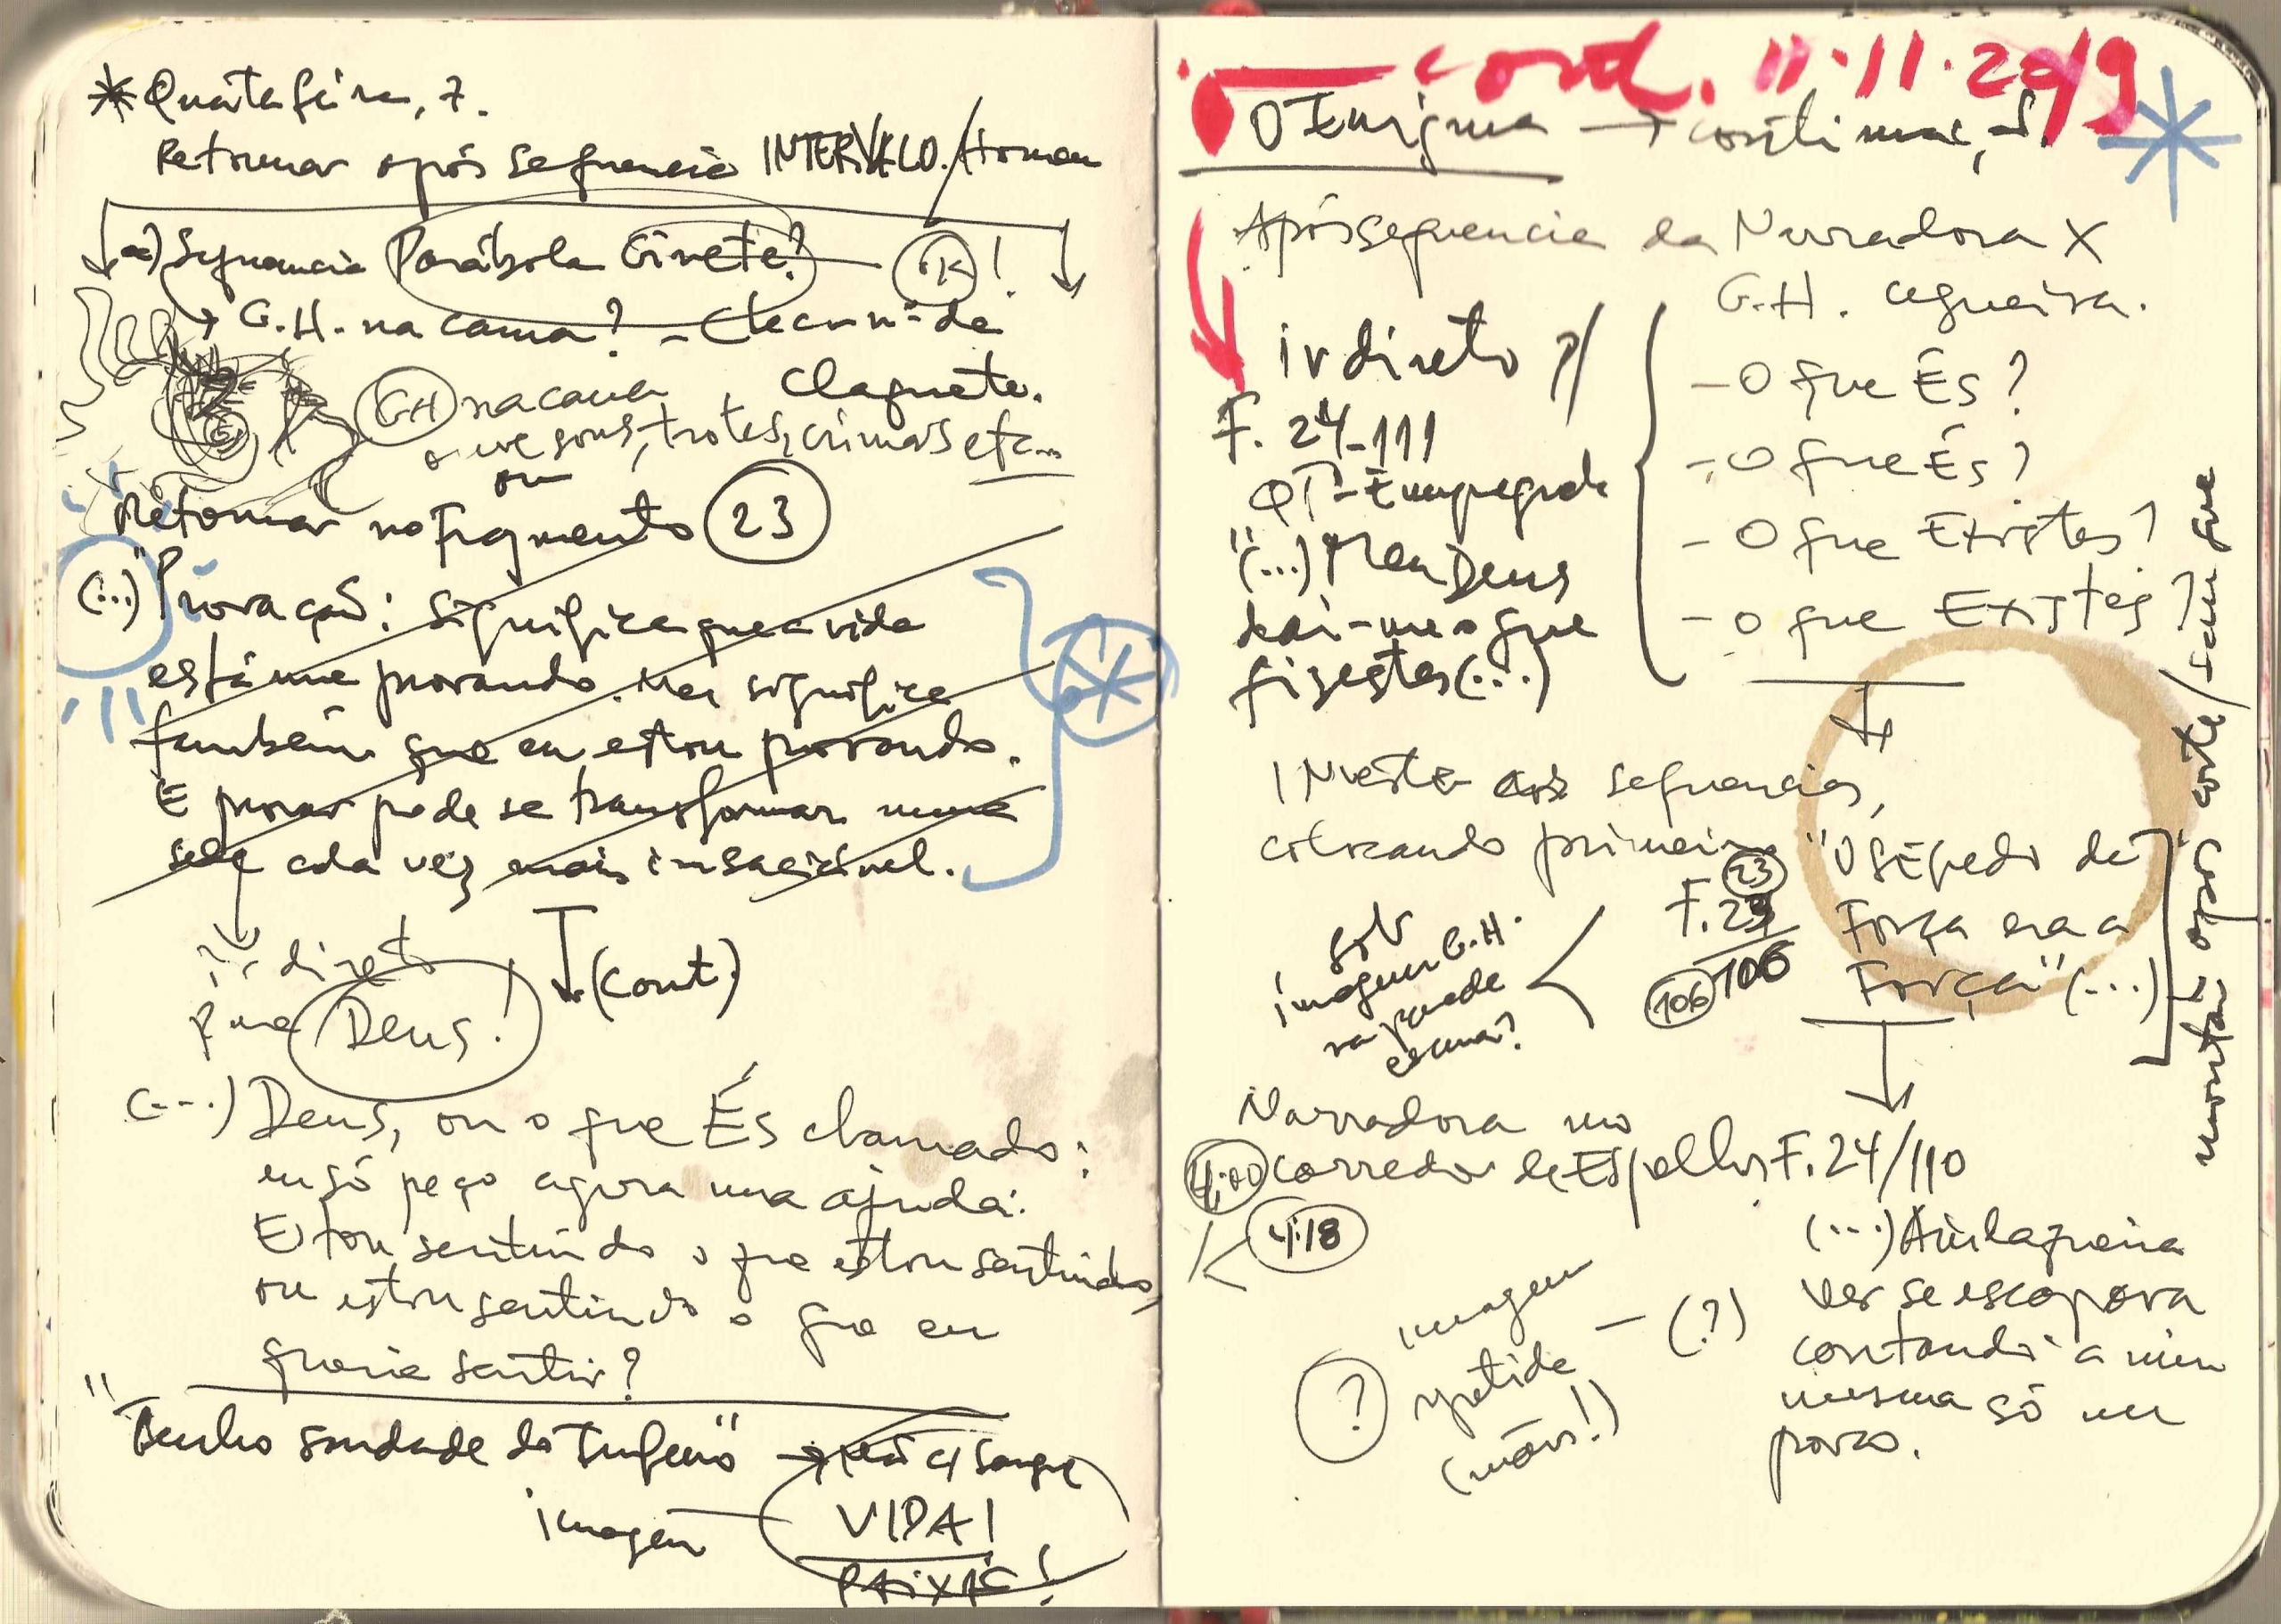 * Quarta feira, 7.
Retomar após sequencia INTERVALO./Homem
a) Sequencia Parábola Ginete? — OK!
→ G.H. na cama? -
claquete.
G.H na cama
ouve sons, trotes, crimas etc...
ou
Retomar no Fragmento 23
(...) "Provação: significa que a vida
está me provando. Mas significa
também que eu estou provando.
E provar pode se transformar numa
sede cada vez mais insaciável.
ir direto
para Deus!
(cont)
(...) Deus, ou o que És chamado:
eu só peço agora uma ajuda:
Estou sentindo o que estou sentindo,
ou estou sentindo o que eu
queria sentir?
"Tenho saudade do Inferno" → c/ sangue
imagem — VIDA!
PAIXÃO!
cont. 11.11.2019
O Enigma →
Após sequencia da Narradora X
G.H. cegueira.
ir direto p/
F. 24-111
QT-Empregada
"(...) Meu Deus
dai-me o que
fizestes (...)
- O que És?
- O que És?
- O que Existes?
- O que Existes?
Inverter as sequencias,
colocando primeiro
23
F. 23
106 106
"O segredo da
Força era a
Força" (...)
montar após corte/sem que
G.H.
imagem G.H.
na parede
cama?
Narradora no
4:00 corredor de Espelhos F. 24/110
4:18
(...) Ainda queria
ver se escapava
contando a mim
mesma só um
pouco.
imagem
repetida — (?)
?
(mãos!)